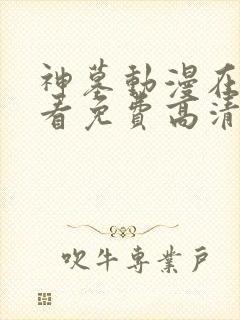 神墓動漫在
看免費高清
吹牛專業戶